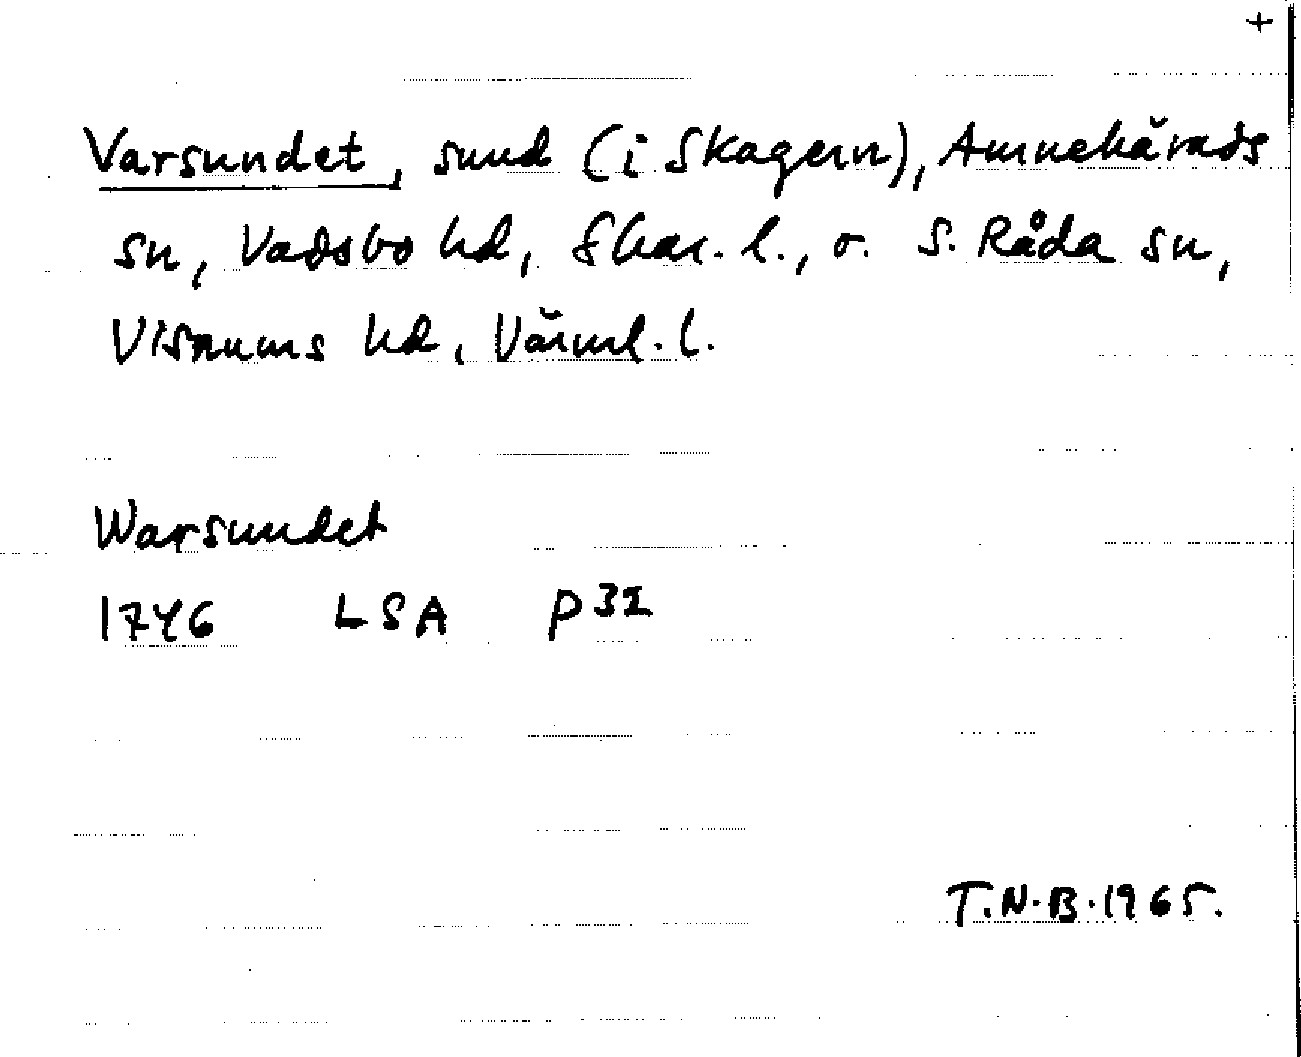 +
Varsundet, sund (i Skagern), Amnehärads
sn, Vadsbo hd, Skar. l., o. S. Råda sn,
Visnums hd, Värml. l.
Warsundet
1746 LSA P 32
T.N.B. 1965.